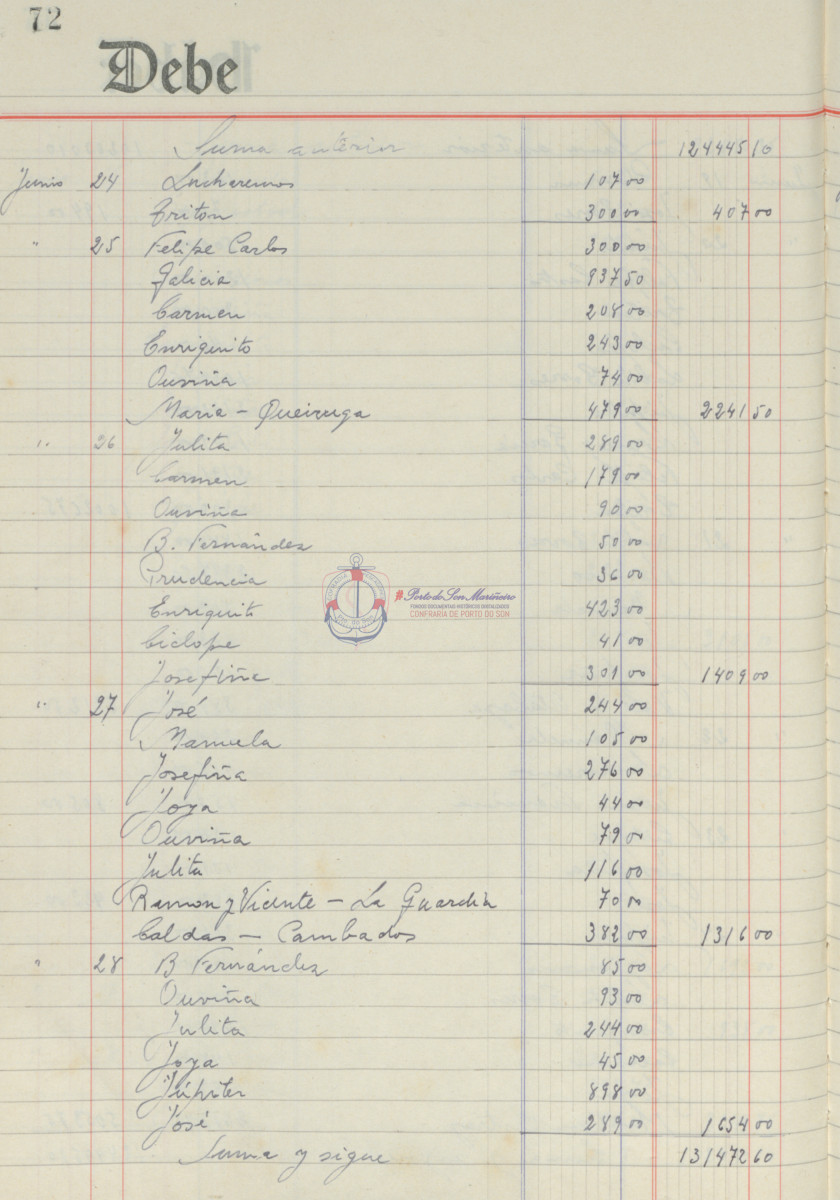 72
Debe
Suma anterior 124445 10
Junio 24 Lucharemos 107 00
Triton 300 00 407 00
" 25 Felipe Carlos 300 00
Galicia 937 50
Carmen 208 00
Enriquito 243 00
Ouviña 74 00
Maria - Queiruga 479 00 2241 50
" 26 Julita 289 00
Carmen 179 00
Ouviña 90 00
B. Fernández 50 00
Prudencia 36 00
Enriquito 423 00
Ciclope 41 00
Josefiña 301 00 1409 00
" 27 José 244 00
Manuela 105 00
Josefiña 276 00
Joya 44 00
Ouviña 79 00
Julita 116 00
Ramon y Vicente - La Guardia 70 00
Caldas - Cambados 382 00 1316 00
" 28 B Fernández 85 00
Ouviña 93 00
Julita 244 00
Joya 45 00
Júpiter 898 00
José 289 00 1654 00
Suma y sigue 131472 60
#PortodoSonMariñeiro
FONDOS DOCUMENTAIS HISTÓRICOS DIXITALIZADOS
CONFRARIA DE PORTO DO SON